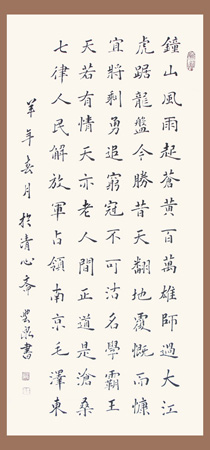 鐘山風雨起蒼黃百萬雄師過大江
虎踞龍盤今勝昔天翻地覆慨而慷
宜將剩勇追窮寇不可沽名學霸王
天若有情天亦老人間正道是滄桑
七律人民解放軍占領南京毛澤東
羊年春月於清心齋書